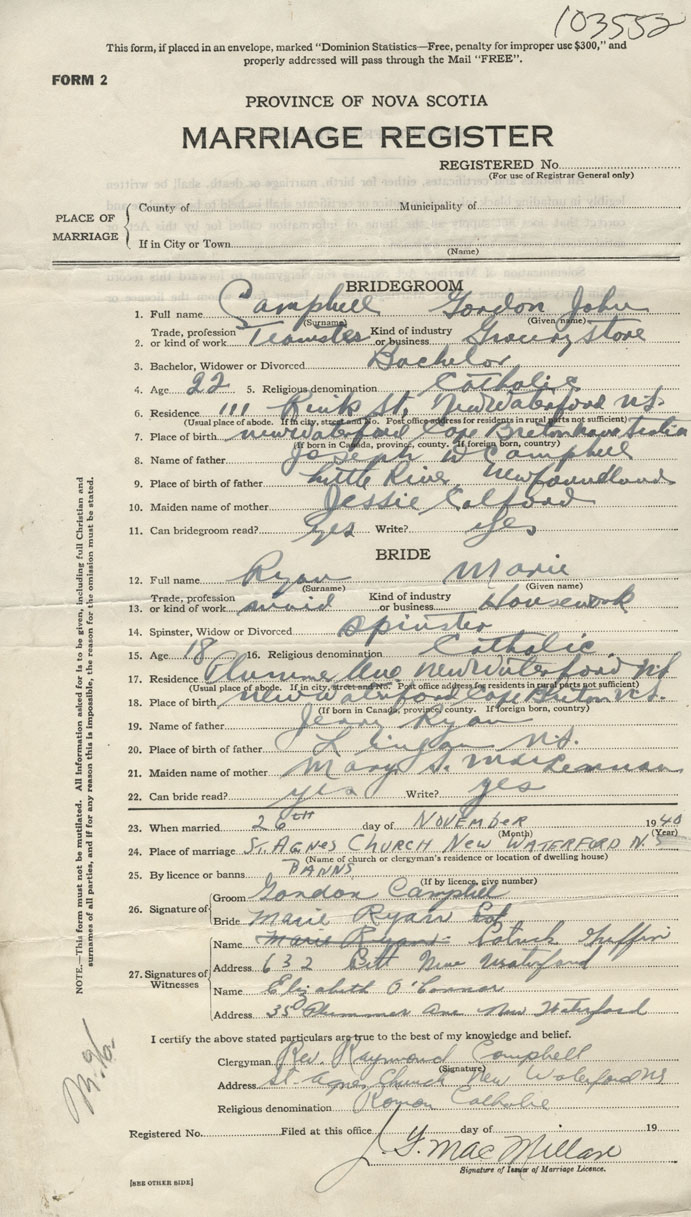 103552
This form, if placed in an envelope, marked "Dominion Statistics—Free, penalty for improper use $300," and
properly addressed will pass through the Mail "FREE".
FORM 2
PROVINCE OF NOVA SCOTIA
MARRIAGE REGISTER
REGISTERED No.
(For use of Registrar General only)
PLACE OF MARRIAGE
County of Municipality of
If in City or Town
(Name)
BRIDEGROOM
1. Full name Campbell Gordon John
(Surname) (Given name)
2. Trade, profession or kind of work Teamster Kind of industry or business Grocery Store
3. Bachelor, Widower or Divorced Bachelor
4. Age 22 5. Religious denomination Catholic
6. Residence 111 Rink St, New Waterford N.S.
(Usual place of abode. If in city, street and No. Post office address for residents in rural parts not sufficient)
7. Place of birth New Waterford Cape Breton Nova Scotia
(If born in Canada, province, county. If foreign born, country)
8. Name of father Joseph W Campbell
9. Place of birth of father Little River Newfoundland
10. Maiden name of mother Jessie Colford
11. Can bridegroom read? Yes Write? Yes
BRIDE
12. Full name Ryan Marie
(Surname) (Given name)
13. Trade, profession or kind of work maid Kind of industry or business Housework
14. Spinster, Widow or Divorced Spinster
15. Age 18 16. Religious denomination Catholic
17. Residence Plummer Ave New Waterford N.S.
(Usual place of abode. If in city, street and No. Post office address for residents in rural parts not sufficient)
18. Place of birth New Waterford Cape Breton N.S.
(If born in Canada, province, county. If foreign born, country)
19. Name of father Jerry Ryan
20. Place of birth of father Lingan N.S.
21. Maiden name of mother Mary S. MacLennan
22. Can bride read? yes Write? yes
23. When married 26th day of NOVEMBER 1940
(Month) (Year)
24. Place of marriage ST. AGNES CHURCH NEW WATERFORD N.S
(Name of church or clergyman's residence or location of dwelling house)
25. By licence or banns BANNS
(If by licence, give number)
26. Signature of
Groom Gordon Campbell
Bride Marie Ryan
27. Signatures of Witnesses
Name Marie Ryan Patrick Griffin
Address 632 New Waterford
Name Elizabeth O'Connor
Address 35 Plummer Ave New Waterford
I certify the above stated particulars are true to the best of my knowledge and belief.
Clergyman Rev. Raymond Campbell
(Signature)
Address St. Agnes Church New Waterford NS
Religious denomination Roman Catholic
Registered No. Filed at this office day of 19
J. G. MacMillan
Signature of Issuer of Marriage Licence.
[SEE OTHER SIDE]
NOTE.—This form must not be mutilated. All information asked for is to be given, including full Christian and
surnames of all parties, and if for any reason this is impossible, the reason for the omission must be stated.